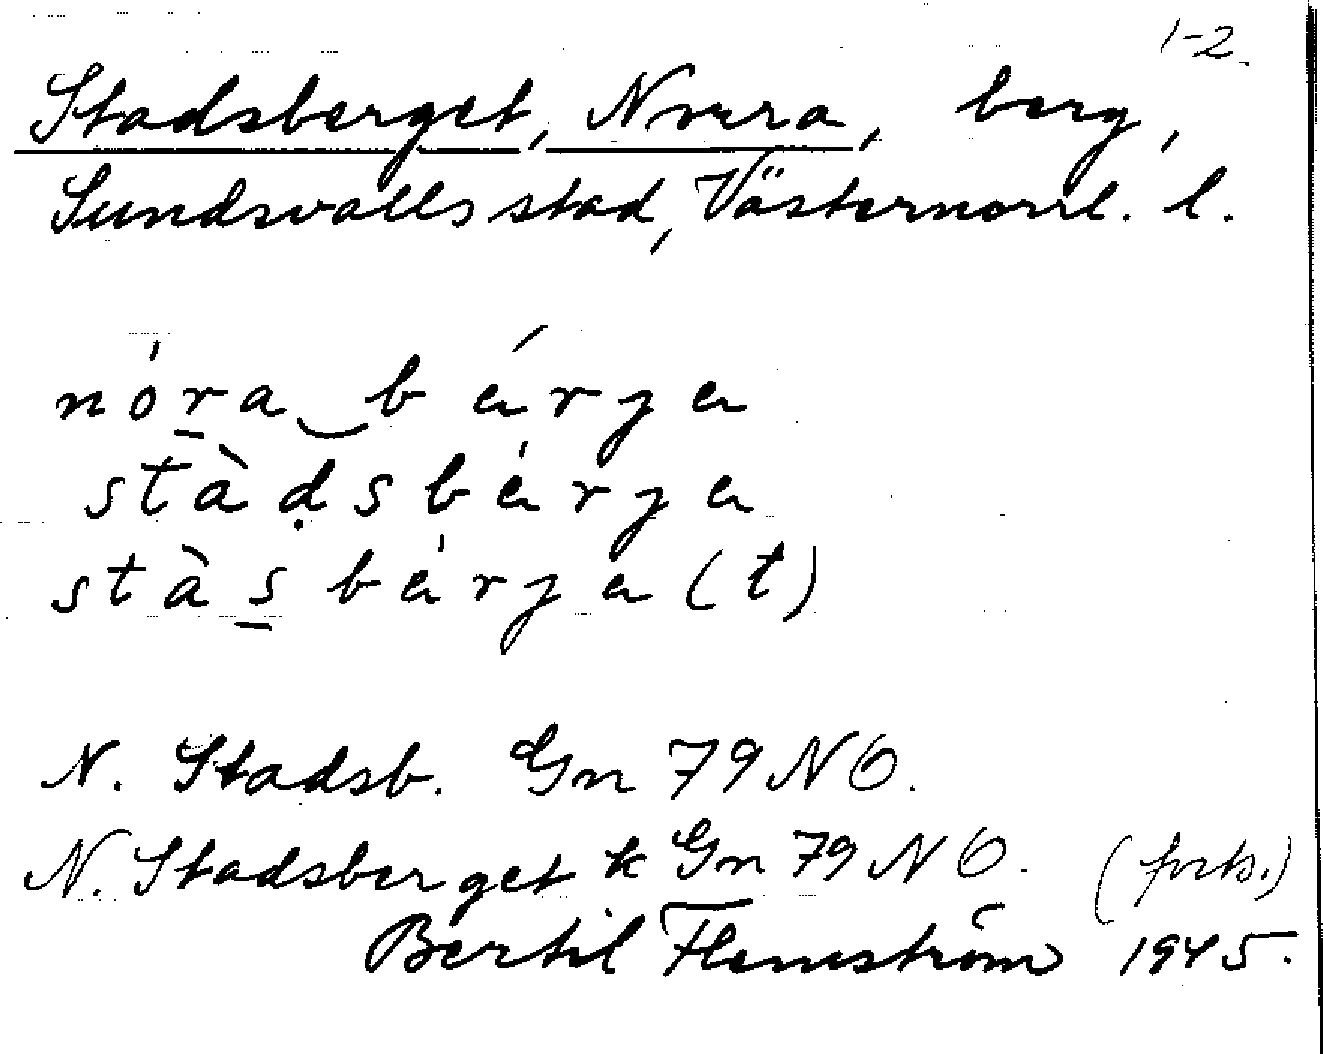 1-2.
Stadsberget, Norra, berg,
Sundsvalls stad, Västernorrl. l.
nó̱ra‿bérȷe
stàḍsbérȷe
stàs̱bérȷe(t)
N. Stadsb. Gn 79 NO.
N. Stadsberget k Gn 79 NO. (forts.)
Bertil Flemström 1945.